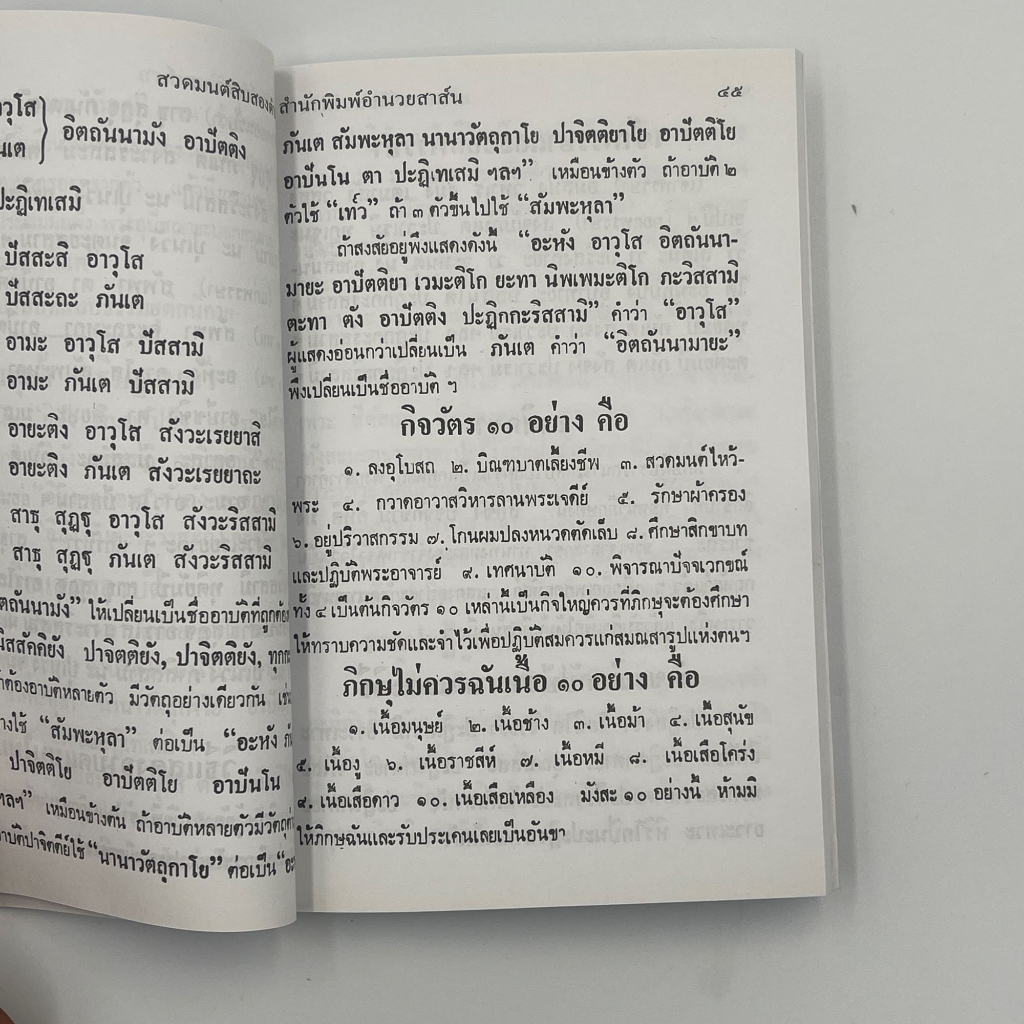 สวดมนต์สิบสอง
อาวุโส
ภันเต
อิตถันนามัง อาปัตติง
ปะฏิเทเสมิ
ปัสสะสิ อาวุโส
ปัสสะถะ ภันเต
อามะ อาวุโส ปัสสามิ
อามะ ภันเต ปัสสามิ
อายะติง อาวุโส สังวะเรยยาสิ
อายะติง ภันเต สังวะเรยยาถะ
สาธุ สุฏฐุ อาวุโส สังวะริสสามิ
สาธุ สุฏฐุ ภันเต สังวะริสสามิ
ตถันนามัง” ให้เปลี่ยนเป็นชื่ออาบัติที่ถูกต้อง
นิสสัคคิยัง ปาจิตติยัง, ปาจิตติยัง, ทุกกะ
ต้องอาบัติหลายตัว มีวัตถุอย่างเดียวกัน เช่น
ใช้ “สัมพะหุลา” ต่อเป็น “อะหัง
ปาจิตติโย อาปัตติโย อาปันโน
ฯลฯ” เหมือนข้างต้น ถ้าอาบัติหลายตัวมีวัตถุ
อาบัติปาจิตตีย์ใช้ “นานาวัตถุกาโย” ต่อเป็น “อะ
สำนักพิมพ์อำนวยสาส์น ๔๕
ภันเต สัมพะหุลา นานาวัตถุกาโย ปาจิตติยาโย อาปัตติโย
อาปันโน ตา ปะฏิเทเสมิ ฯลฯ” เหมือนข้างตัว ถ้าอาบัติ ๒
ตัวใช้ “เท๎ว” ถ้า ๓ ตัวขึ้นไปใช้ “สัมพะหุลา”
ถ้าสงสัยอยู่พึงแสดงดังนี้ “อะหัง อาวุโส อิตถันนา-
มายะ อาปัตติยา เวมะติโก ยะทา นิพเพมะติโก ภะวิสสามิ
ตะทา ตัง อาปัตติง ปะฏิกกะริสสามิ” คำว่า “อาวุโส”
ผู้แสดงอ่อนกว่าเปลี่ยนเป็น ภันเต คำว่า “อิตถันนามายะ”
พึงเปลี่ยนเป็นชื่ออาบัติ ฯ
กิจวัตร ๑๐ อย่าง คือ
๑. ลงอุโบสถ ๒. บิณฑบาตเลี้ยงชีพ ๓. สวดมนต์ไหว้-
พระ ๔. กวาดอาวาสวิหารลานพระเจดีย์ ๕. รักษาผ้าครอง
๖. อยู่ปริวาสกรรม ๗. โกนผมปลงหนวดตัดเล็บ ๘. ศึกษาสิกขาบท
และปฏิบัติพระอาจารย์ ๙. เทศนาบัติ ๑๐. พิจารณาปัจจเวกขณ์
ทั้ง ๔ เป็นต้นกิจวัตร ๑๐ เหล่านี้เป็นกิจใหญ่ควรที่ภิกษุจะต้องศึกษา
ให้ทราบความชัดและจำไว้เพื่อปฏิบัติสมควรแก่สมณสารูปแห่งตนฯ
ภิกษุไม่ควรฉันเนื้อ ๑๐ อย่าง คือ
๑. เนื้อมนุษย์ ๒. เนื้อช้าง ๓. เนื้อม้า ๔. เนื้อสุนัข
๕. เนื้องู ๖. เนื้อราชสีห์ ๗. เนื้อหมี ๘. เนื้อเสือโคร่ง
๙. เนื้อเสือดาว ๑๐. เนื้อเสือเหลือง มังสะ ๑๐ อย่างนี้ ห้ามมิ
ให้ภิกษุฉันและรับประเคนเลยเป็นอันขา